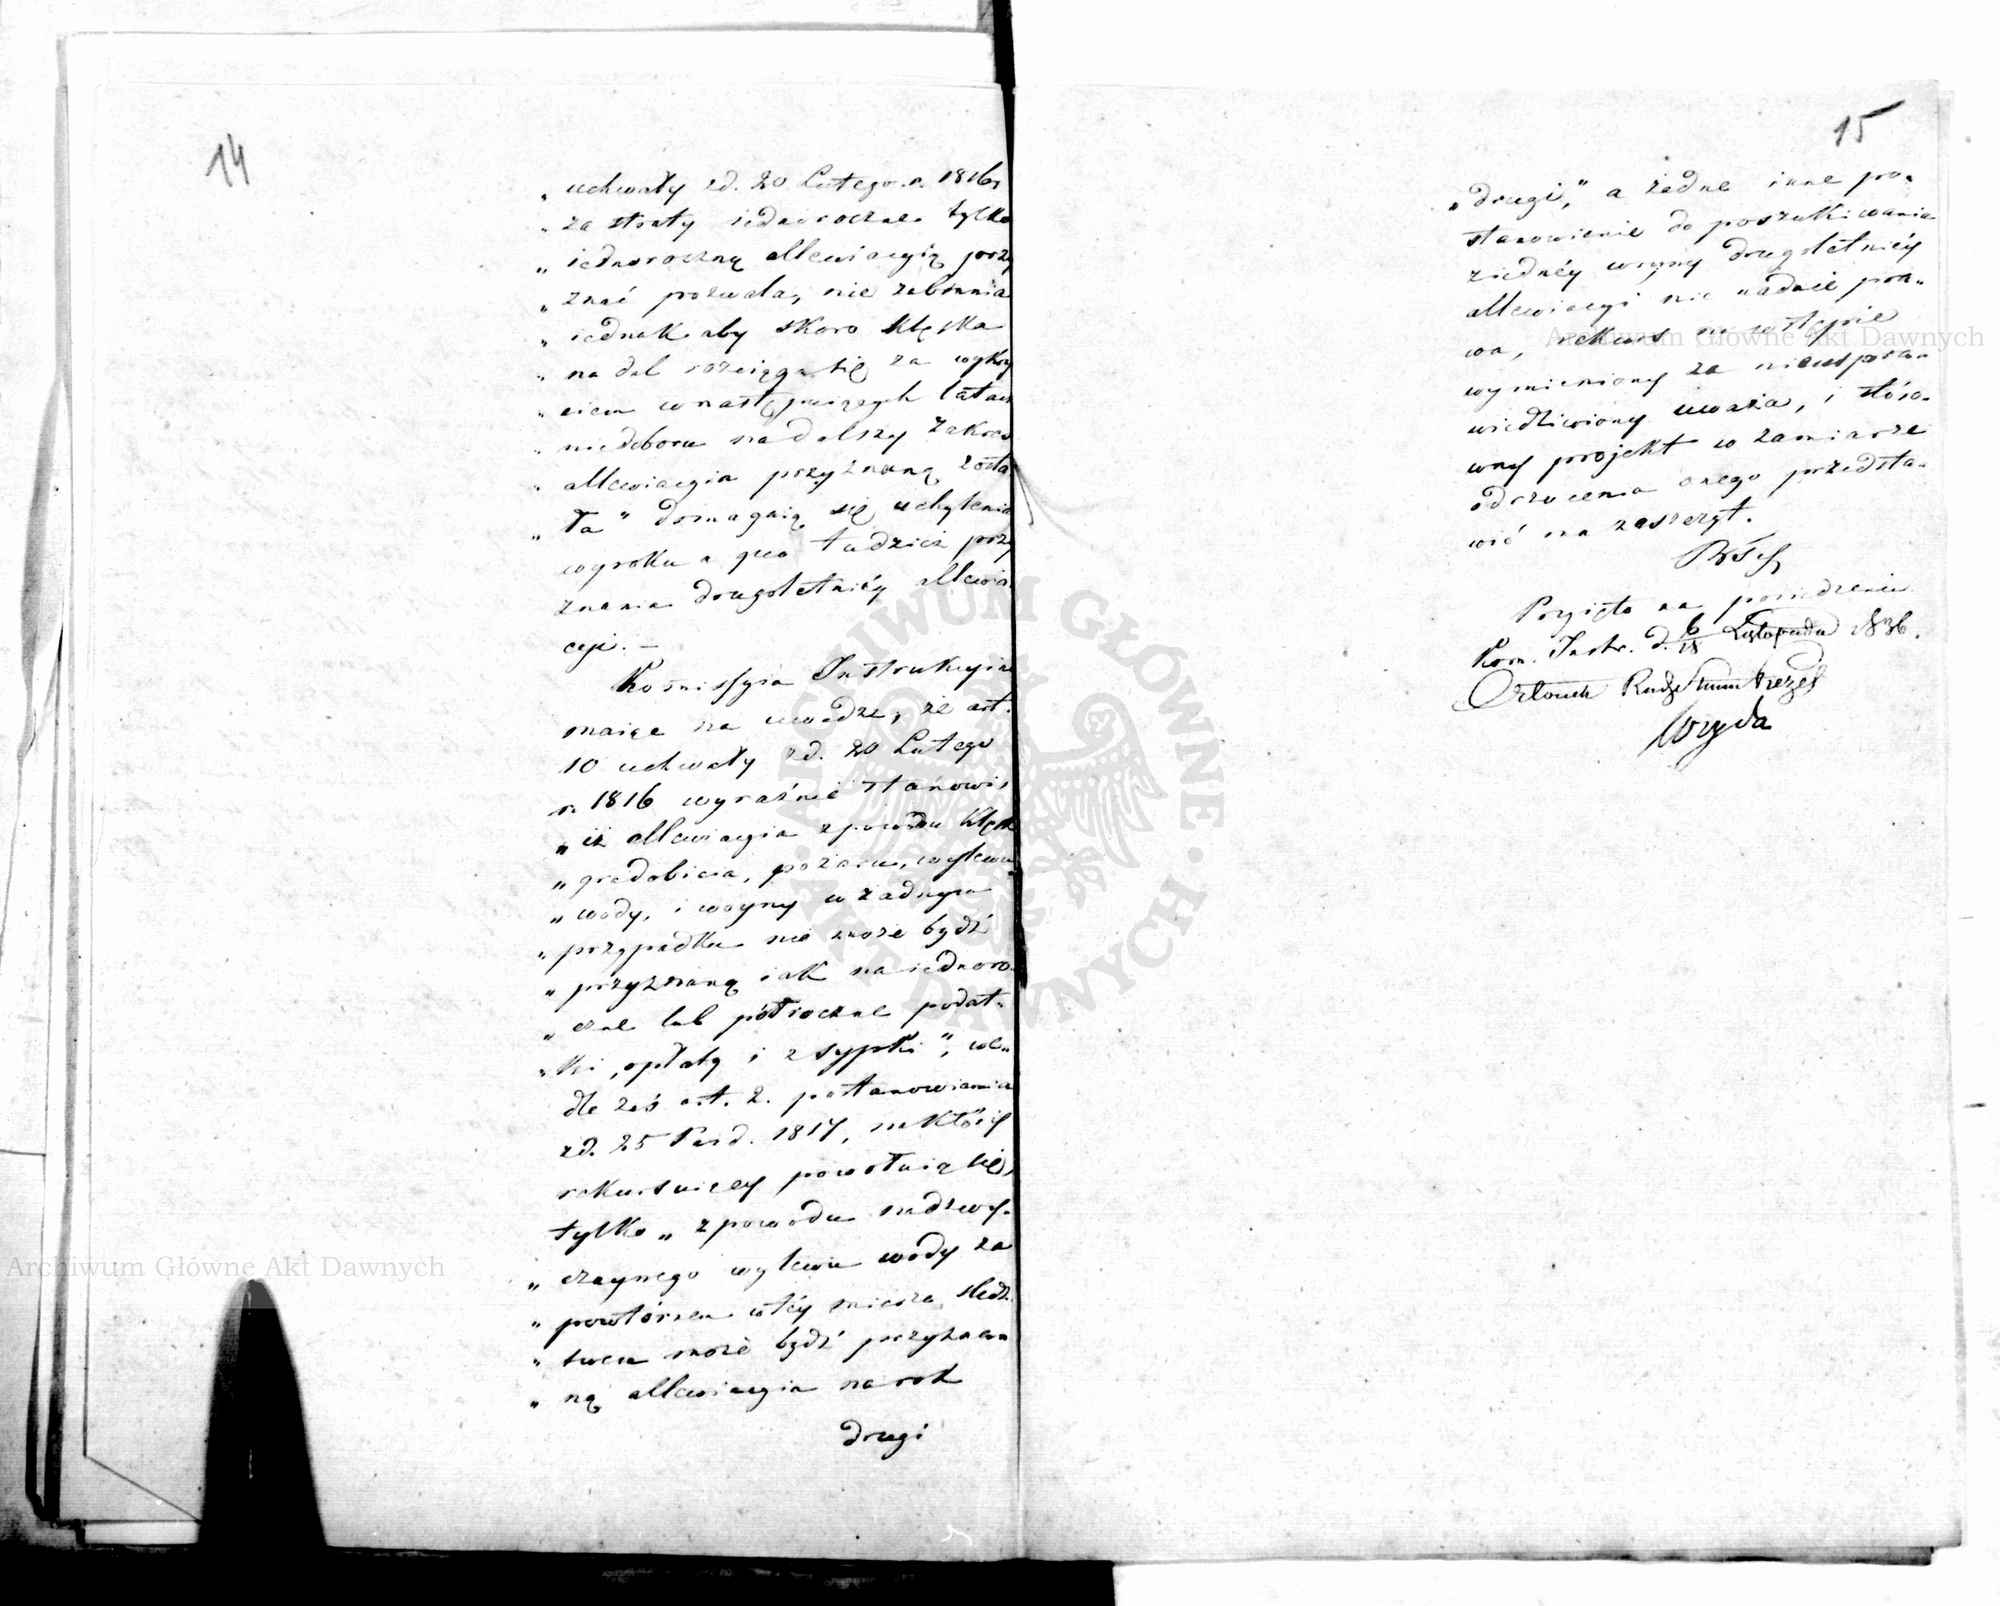 14
„ uchwały zd. 20 Lutego r. 1816,
„ za straty iednoroczne tylko
„ iednoroczną allewiacyią przy
„ znać pozwala, nie zabrania
„ iednak aby skoro klęska
„ na dal rozciąga się za wykry
„ ciem w następuiących latach
„ niedoboru na dalszy zakres
„ allewiacyia przyznaną zosta
„ ła" domagaią się uchylenia
wyroku a quo tudzież przy
znania drugoletniéy allewia
cyi. —
Kommissyia Instrukcyina
maiąc na uwadze, że art.
10 uchwały zd. 20 Lutego
r. 1816 wyraźnie stanowi,
„ iż allewiacyia z powodu klęsk
„ gradobicia, pożaru, wylewu
„ wody, i woyny w żadnym
„ przypadku nie może bydź
„ przyznaną iak na iednoro
„ czne lub półroczne podat-
„ ki, opłaty i zsypki", we-
dle zaś art. 2. postanowienia
zd. 25 Paźd. 1817, na który
rekursuiący powołuią się,
tylko „ z powodu nadzwy-
„ czaynego wylewu wody za
„ powtórzen. w téy mierze śledz
„ twem może bydź przyzna
„ ną allewiacyia na rok
drugi
15
„ drugi", a żadne inne po-
stanowienie do poszukiwania
z iednéy woyny drugoletniéy
allewiacyi nie nadaie pra-
wa, rekurs na wstępie
wymieniony za nieuspra-
wiedliwiony uważa, i stóso-
wny projekt w zamiarze
odrzucenia onego przedsta-
wić ma zaszczyt.
Przyięto na posiedzeniu
Kom. Instr. d. 6/18 Listopada 1836.
Członek Rady Stanu Prezes
Woyda
Archiwum Główne Akt Dawnych
Archiwum Główne Akt Dawnych
ARCHIWUM GŁÓWNE AKT DAWNYCH